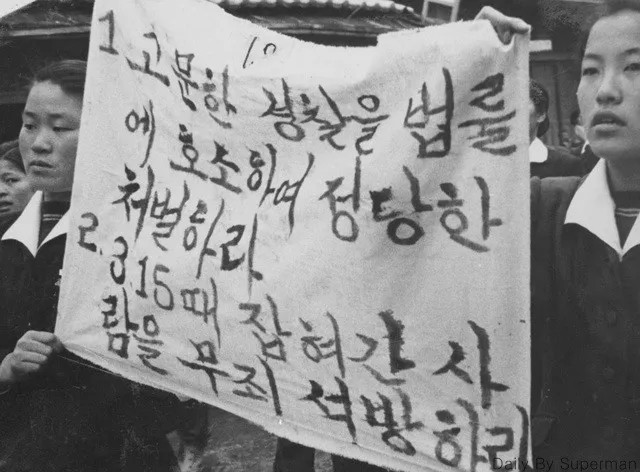 1 고문한 경찰을 법률
에 호소하여 정당한
처벌하라
2. 3.15때 잡혀간 사
람을 무죄 석방하라
Daily By Superman